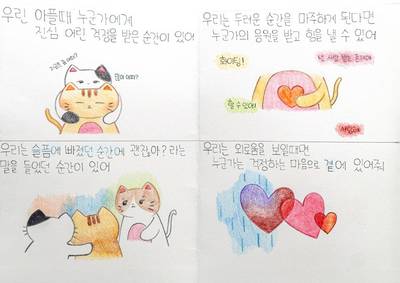 우린 아플때 누군가에게
진심 어린 걱정을 받은 순간이 있어
좀 어때?
많이 아파?
우리는 두려운 순간을 마주하게 된다면
누군가의 응원을 받고 힘을 낼 수 있어
화이팅!
넌 사랑 받는 존재야
할 수 있어!
사랑해
우리는 슬픔에 빠졌던 순간에 괜찮아? 라는
말을 들었던 순간이 있어
우리는 외로움을 보일때면
누군가는 걱정하는 마음으로 곁에 있어줘